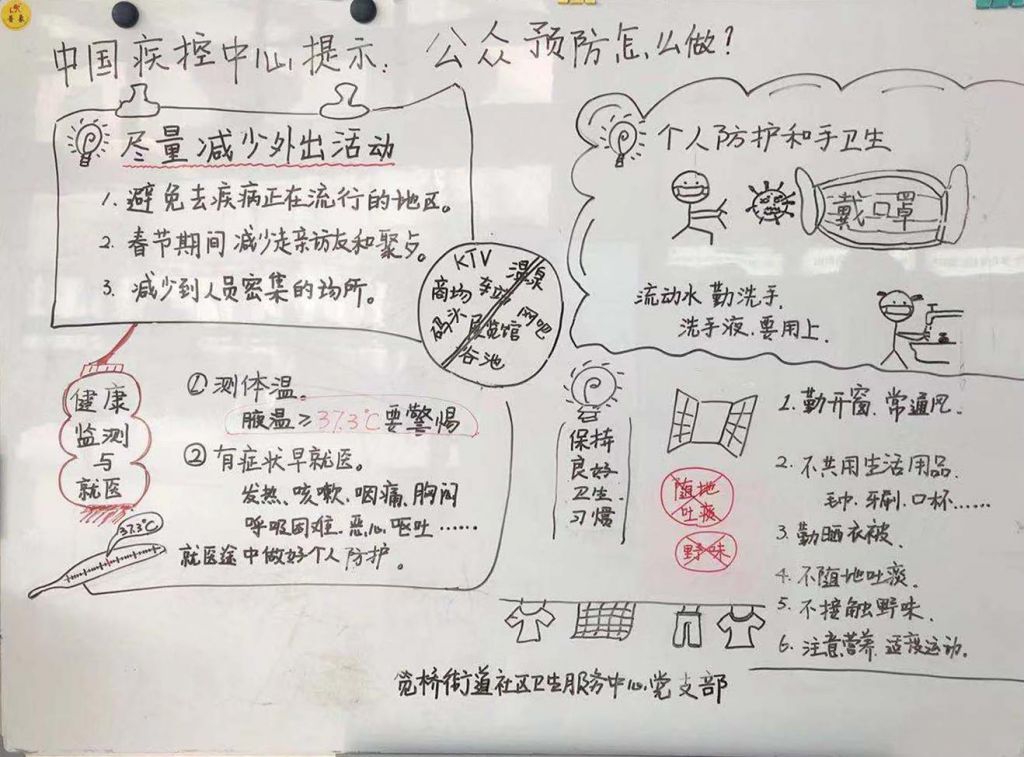 中国疾控中心提示：公众预防怎么做？
尽量减少外出活动
1. 避免去疾病正在流行的地区。
2. 春节期间减少走亲访友和聚会。
3. 减少到人员密集的场所。
KTV
温泉
商场
车站
码头
展览馆
网吧
浴池
个人防护和手卫生
戴口罩
流动水勤洗手.
洗手液.要用上.
健康
监测
与
就医
① 测体温。
腋温≥37.3℃要警惕
② 有症状早就医。
发热、咳嗽、咽痛、胸闷
呼吸困难、恶心、呕吐……
就医途中做好个人防护。
37.3℃
保持
良好
卫生
习惯
随地
吐痰
野味
1. 勤开窗.常通风.
2. 不共用生活用品.
毛巾.牙刷.口杯……
3. 勤晒衣被.
4. 不随地吐痰.
5. 不接触野味.
6. 注意营养.适度运动.
笕桥街道社区卫生服务中心党支部